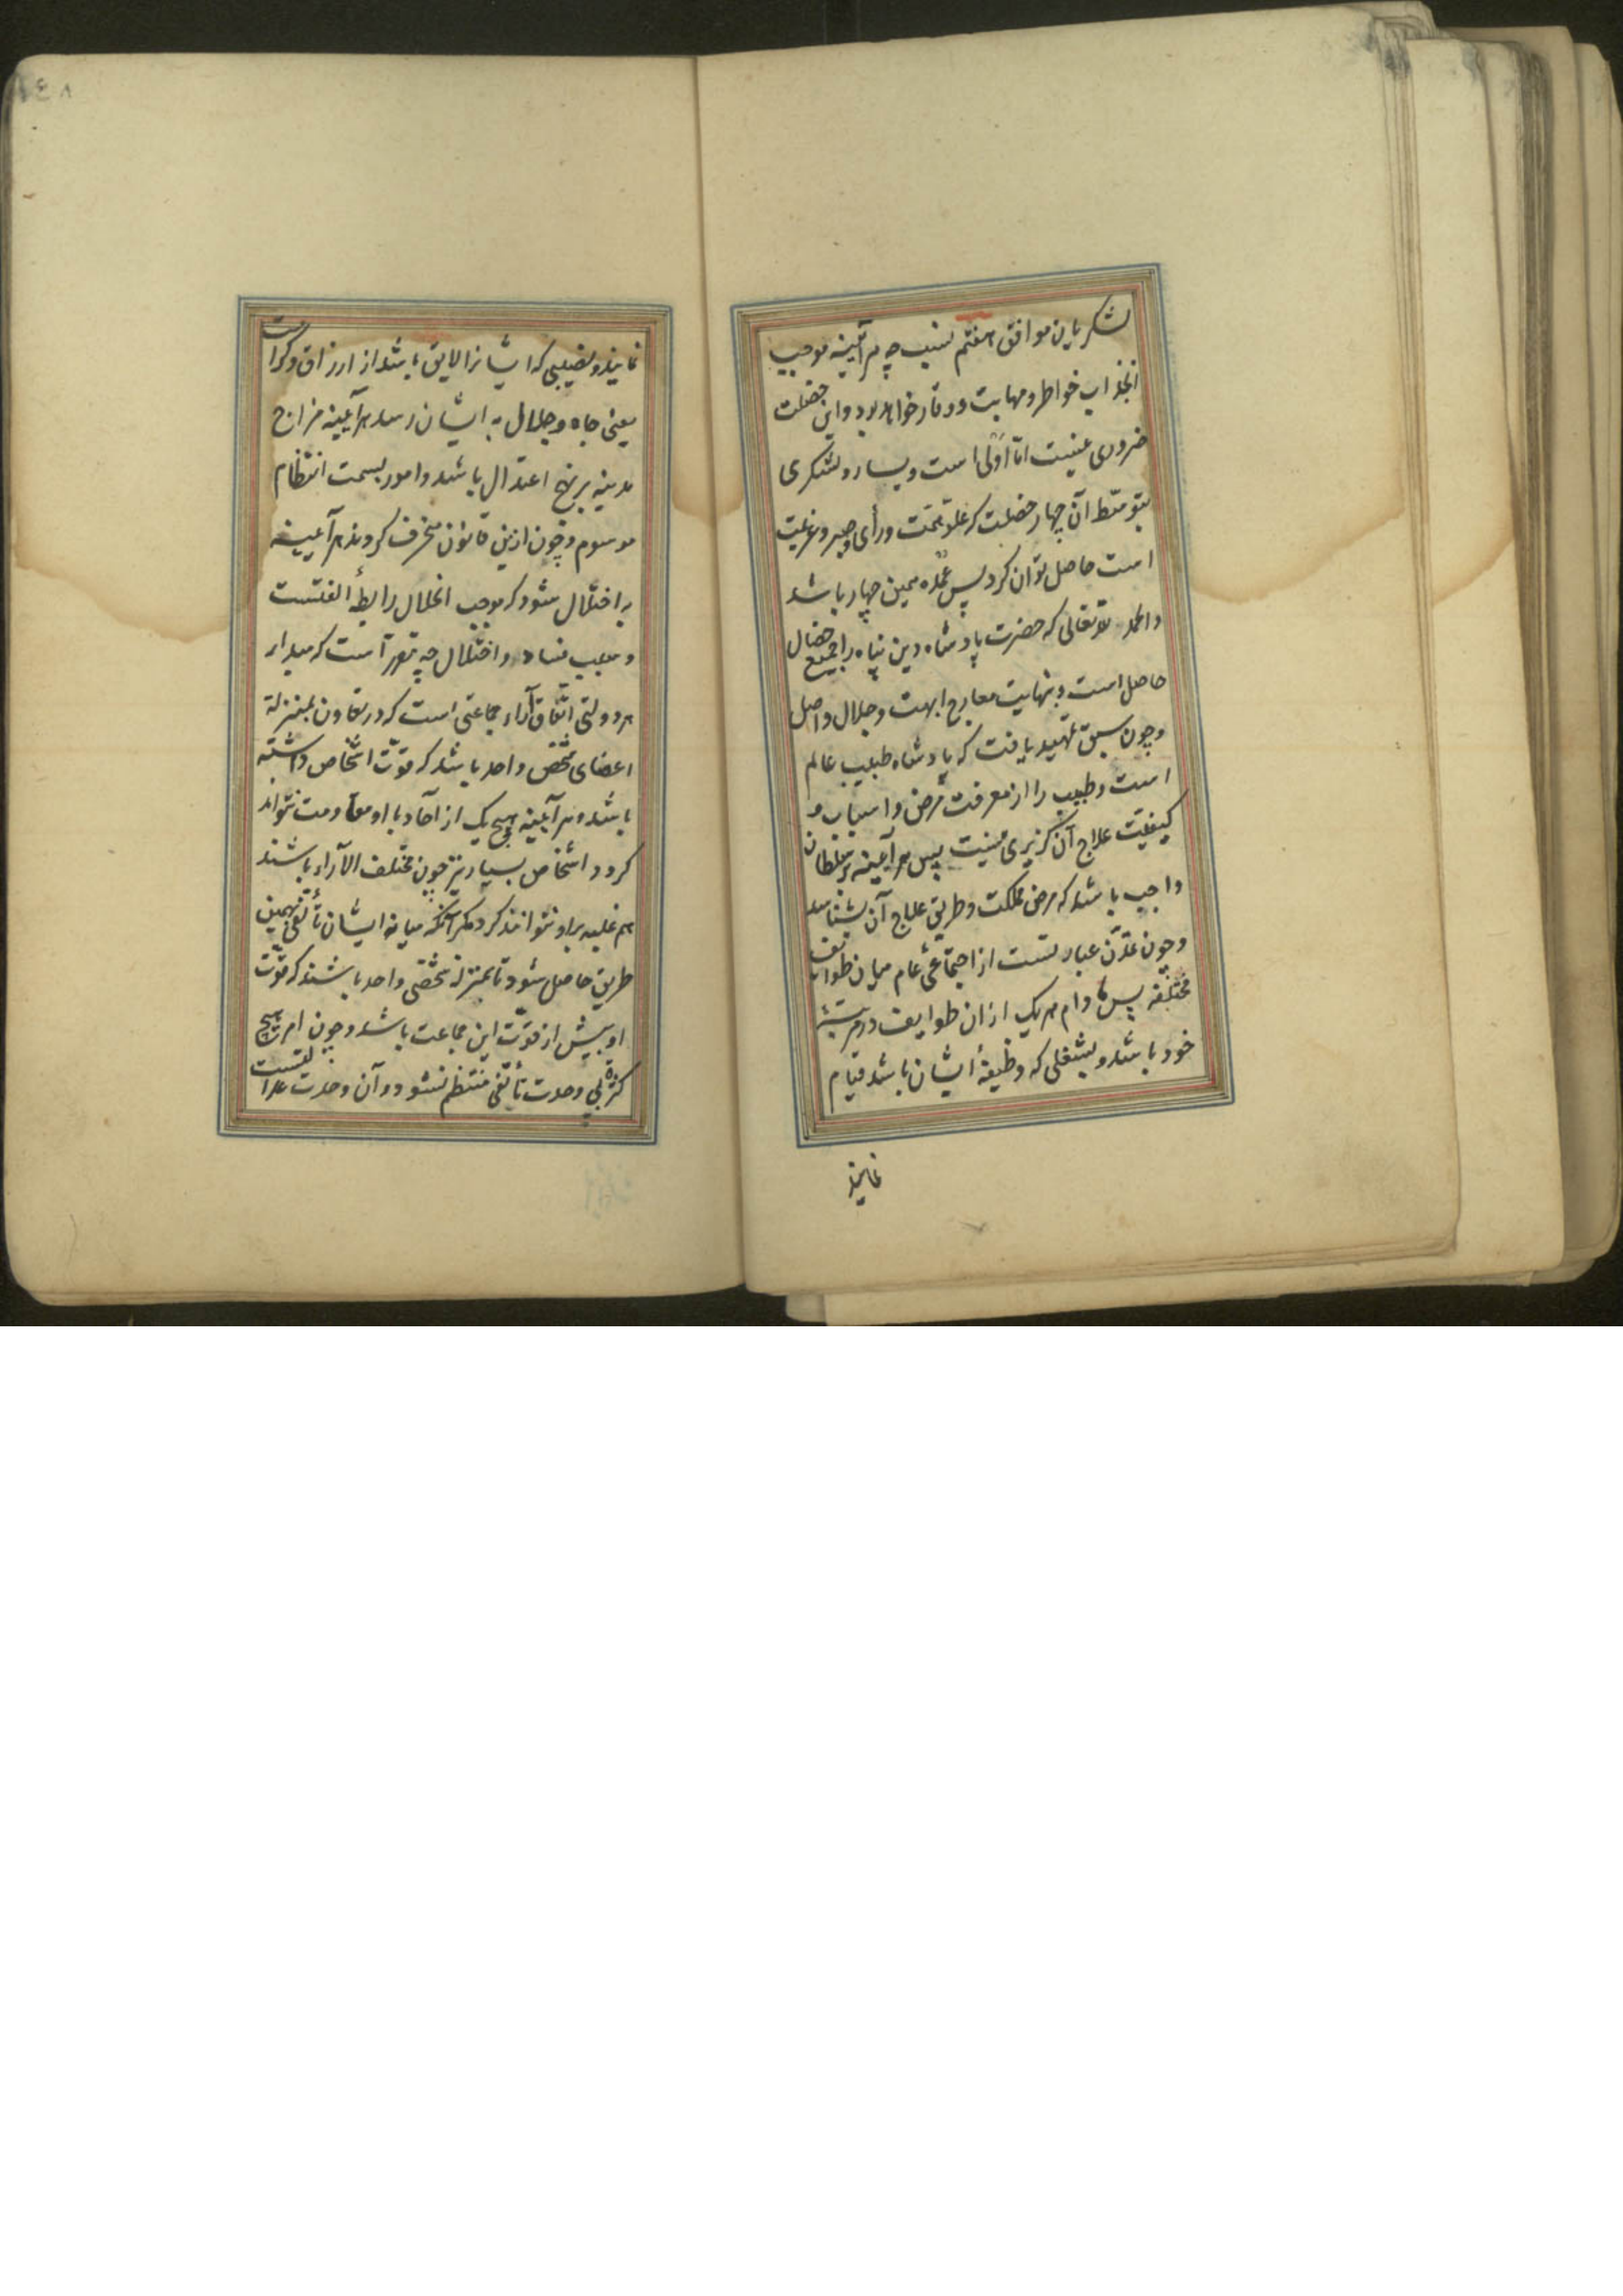 لشکریان موافق هفتم نسب چه هر آئینه موجب
انجذاب خواطر و مهابت و وقار خواهد بود و این خصلت
ضروری نیست امّا اَولی است و یسار و لشکری
بتوسّط آن چهار خصلت که علوّ همّت و رأی و صبر و عزیمت
است حاصل توان کرد پس عمده همین چهار باشد
و الحمد لله تعالی که حضرت پادشاه دین پناه را جمیع خصال
حاصل است و بنهایت معارج ابهت و جلال واصل
و چون سبق تمهید یافت که پادشاه طبیب عالم
است و طبیب را از معرفت مرض و اسباب و
کیفیّت علاج آن گزیری نیست پس هر آئینه بر سلطان
واجب باشد که مرض مملکت و طریق علاج آن بشناسد
و چون تمدّن عبارتست از اجتماعی عام میان طوایف
مختلفه پس ما دام هر یک از آن طوایف در مرتبهٔ
خود باشد و بشغلی که وظیفهٔ ایشان باشد قیام
نمایند
۱٤۸
نمایند و نصیبی که ایشانرا لایق باشد از ارزاق و کرامت
یعنی جاه و جلال به ایشان رسد هر آیینه مزاج
مدینه بر نهج اعتدال باشد و امور بسمت انتظام
موسوم و چون ازین قانون منحرف گردند هر آیینه
به اختلال شود که موجب انحلال رابطهٔ الفتست
و سبب فساد و اختلال چه مقرر است که مدار
هر دولتی اتّفاق آراء جماعتی است که در تعاون بمنزلة
اعضای شخص واحد باشد که قوّت اشخاص داشته
باشد و هر آیینه هیچ یک از آحاد با او مقاومت نتواند
کرد و اشخاص بسیار نیز چون مختلف الآراء باشند
هم غلبه بر او نتوانند کرد مگر آنکه میانه ایشان تألّفی بهمین
طریق حاصل شود تا بمنزلۀ شخصی واحد باشند که قوّت
او بیش از قوّت این جماعت باشد و چون امر هیچ
کثرة بی وحدت تألّفی منتظم نشود و آن وحدت عدالتست